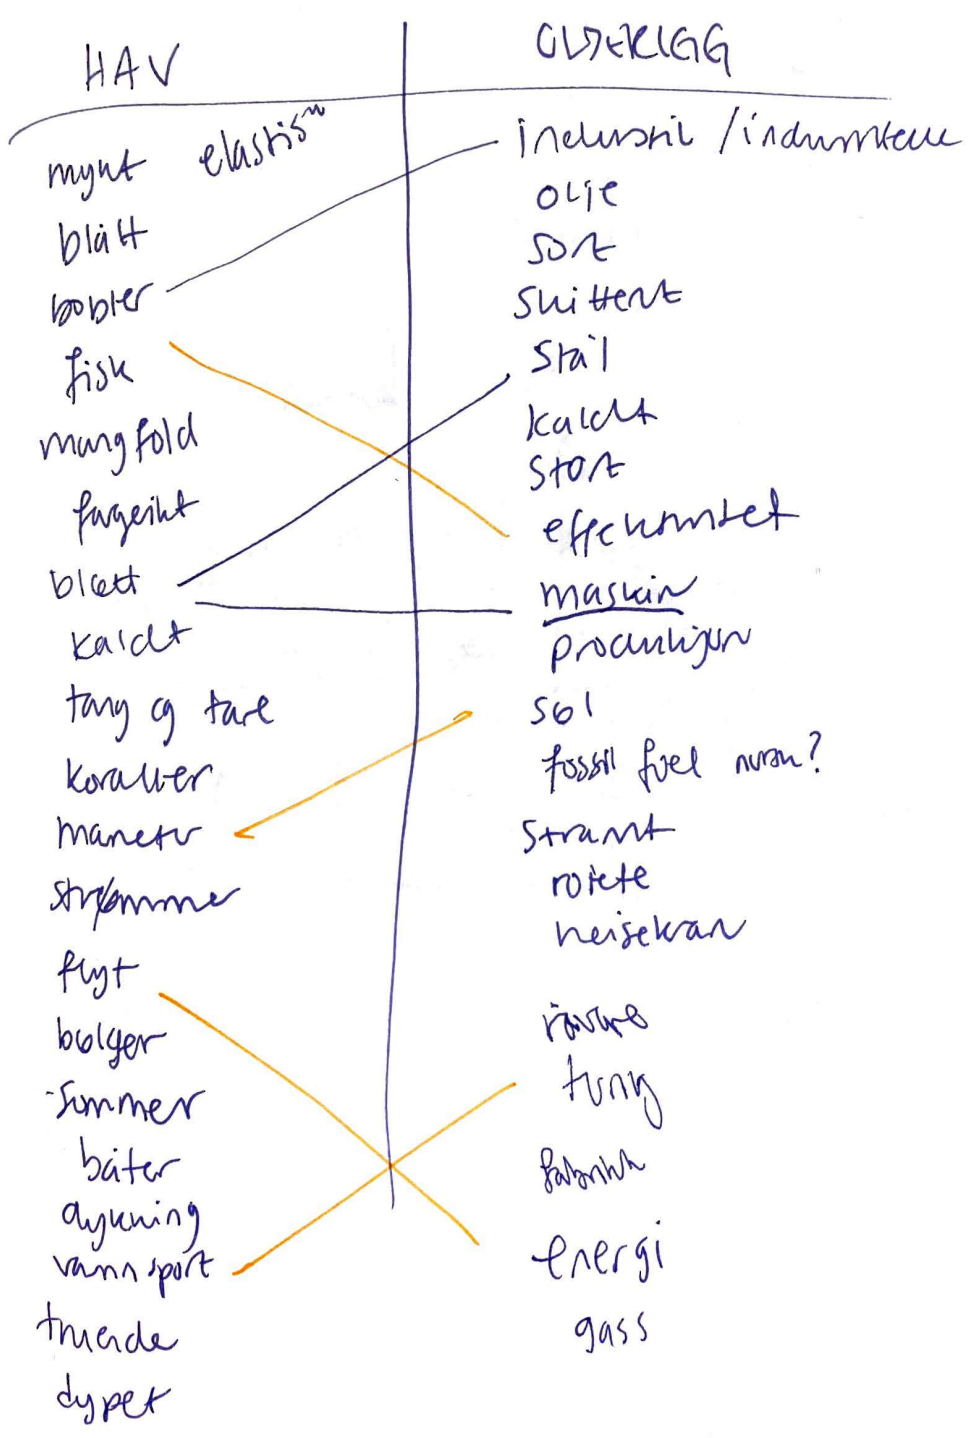 HAV
OLJERIGG
mykt elastisk
blått
bobler
fisk
mangfold
fargerikt
blått
kaldt
tang og tare
koraller
maneter
strømmer
flyt
bølger
sommer
båter
dykning
vannsport
truende
dypet
industri /industriell
olje
sort
skittent
stål
kaldt
stort
effektivitet
maskin
produksjon
søl
fossil fuel
stramt
rotete
heisekran
råvare
tung
fabrikk
energi
gass